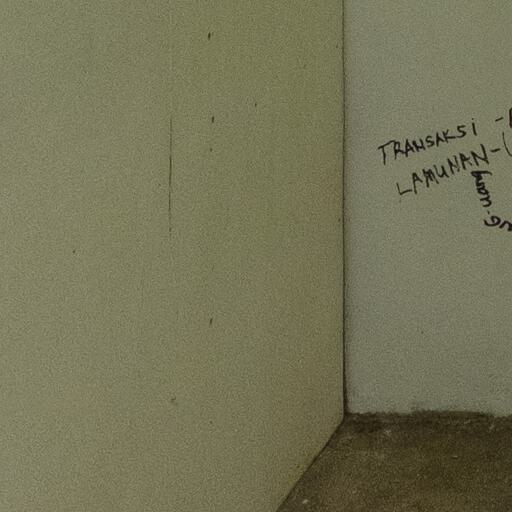 TRANSAKSI -
LAMUNAN - (